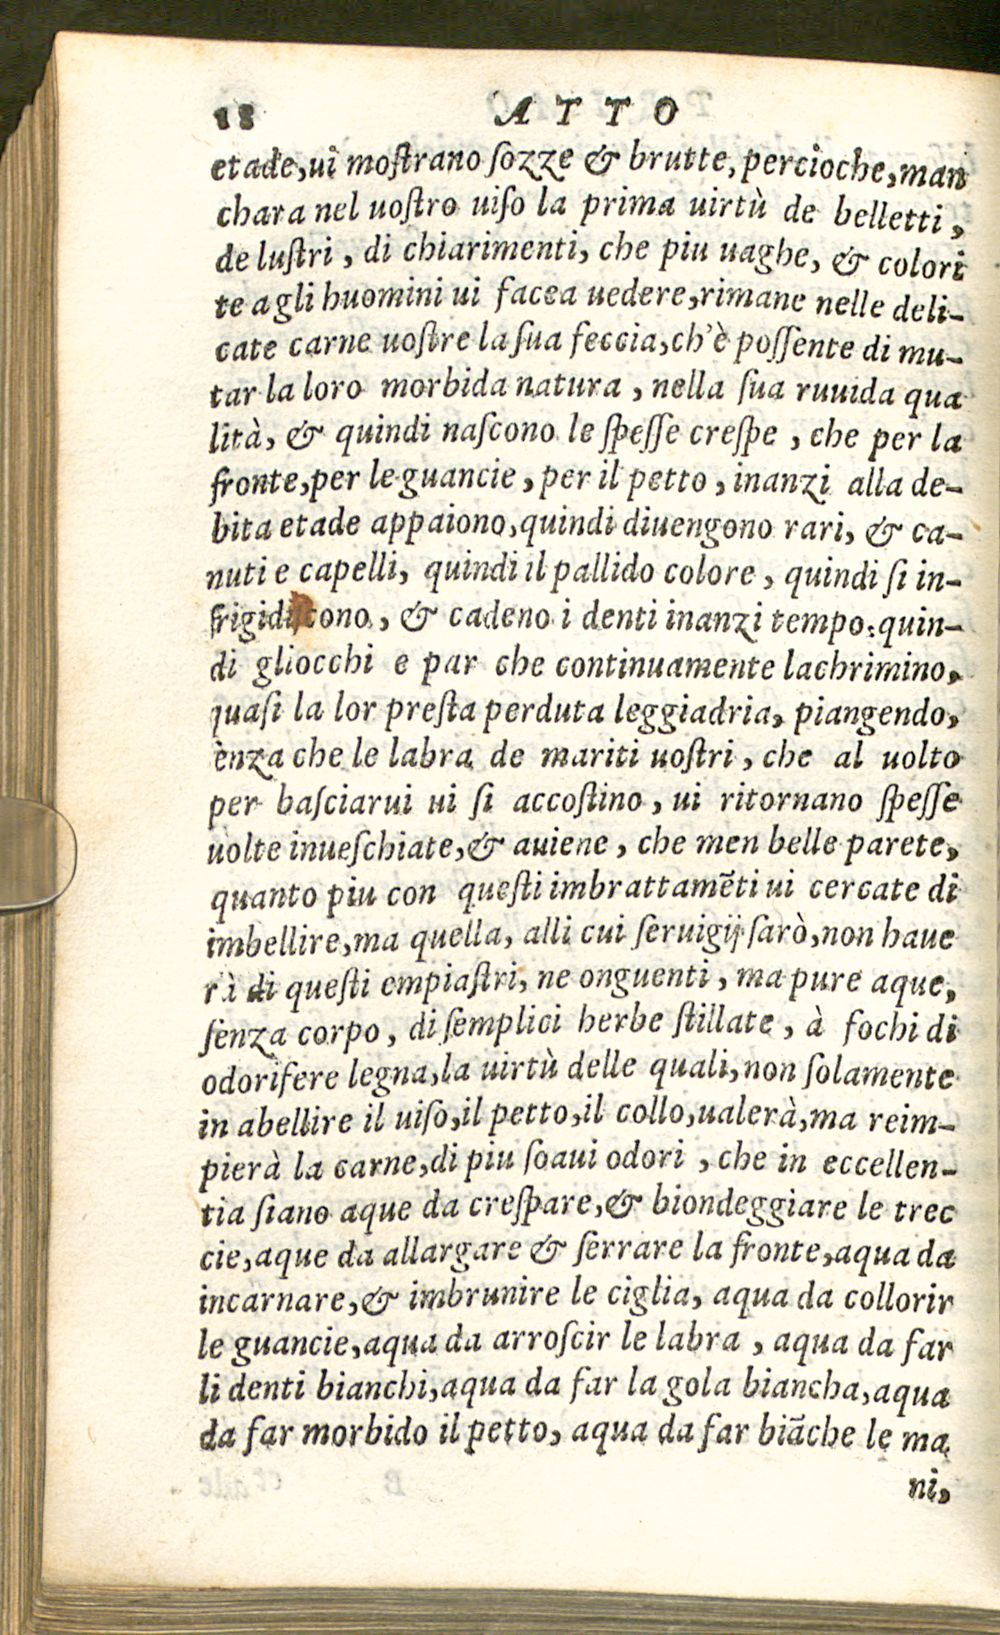 18 ATTO
etade,ui moſtrano ſozze & brutte, percioche,man
chara nel uoſtro uiſo la prima uirtù de belletti,
de luſtri, di chiarimenti, che piu uaghe, & colori
te agli huomini ui facea uedere,rimane nelle deli-
cate carne uoſtre la ſua feccia,ch'è poſſente di mu-
tar la loro morbida natura, nella ſua ruuida qua
lità, & quindi naſcono le ſpeſſe creſpe, che per la
fronte,per le guancie,per il petto, inanzi alla de-
bita etade appaiono,quindi diuengono rari, & ca-
nuti e capelli, quindi il pallido colore, quindi ſi in-
frigidiſcono, & cadeno i denti inanzi tempo:quin-
di gliocchi e par che continuamente lachrimino,
quaſi la lor preſta perduta leggiadria, piangendo,
enza che le labra de mariti uoſtri, che al uolto
per baſciarui ui ſi accoſtino, ui ritornano ſpeſſe
uolte inueſchiate,& auiene, che men belle parete,
quanto piu con queſti imbrattamẽti ui cercate di
imbellire,ma quella, alli cui ſeruigij ſarò,non haue
rà di queſti empiaſtri, ne onguenti, ma pure aque,
ſenza corpo, di ſemplici herbe ſtillate, à fochi di
odorifere legna,la uirtù delle quali,non ſolamente
in abellire il uiſo,il petto,il collo,ualerà,ma reim-
pierà la carne,di piu ſoaui odori, che in eccellen-
tia ſiano aque da creſpare,& biondeggiare le trec
cie,aque da allargare & ſerrare la fronte,aqua da
incarnare,& imbrunire le ciglia, aqua da collorir
le guancie,aqua da arroſcir le labra, aqua da far
li denti bianchi,aqua da far la gola biancha,aqua
da far morbido il petto, aqua da far biãche le ma
ni,